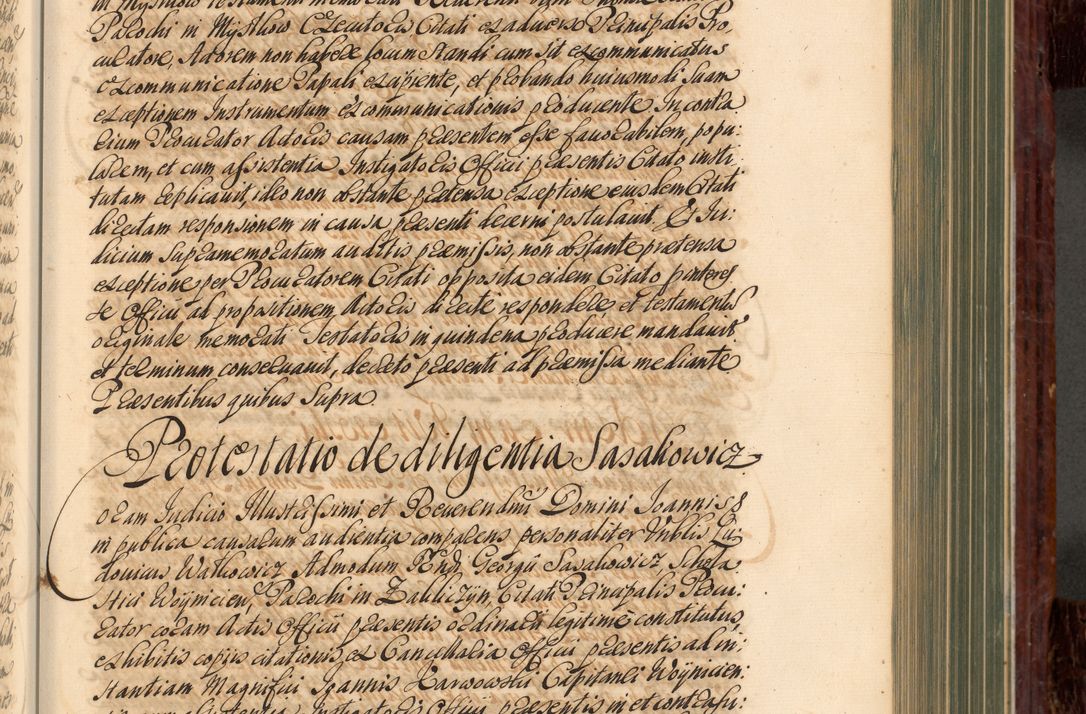 Parochi in Mystkow Executoris Citati ex adverso Principalis Pro,
curatore, Actorem non habere locum Standi cum sit excommunicatus
excommunicatione Papali excipiente, et probando huiusmodi Suam
exceptionem Instrumentum excommunicationis producente. In contra
rium Procurator Actoris causam praesentem esse favorabilem, popu:
larem, et cum assistentia Instigatoris Officii praesentis Citato insti
tutam explicavit, ideo non obstante praetensa exceptione eiusdem Citati
directam responsionem in causa praesenti decerni postulavit. Et Iu:
dicium Supramemoratum auditis praemissis, non obstante praetensa
exceptione per Procuratorem Citati opposita eidem Citato
se Officii ad propositionem Actoris directe respondere et testamentũ
originale memorati Testatoris in quindena producere mandavit
et terminum conservavit, decreto praesenti ad praemissa mediante
Praesentibus quibus Supra.
Protestatio de diligentia Sasakowicz
oram Iudicio Illustrissimi et Reverendmi Domini Ioannis
in publica causarum audientia comparens personaliter Urblis Lu
dovicus Watkowicz Admodum Rndi Georgii Sasakowicz, Schola
stici Woynicien, Parochi in Zakliczyn, Citati Principalis Procu:
rator coram Actis Officii praesentis ordinarii legitime constitutus,
exhibitis copiis citationis, ex Cancellaria Officii praesentis ad in:
stantiam Magnifici Ioannis Karwowski Capitanei Woynicien: